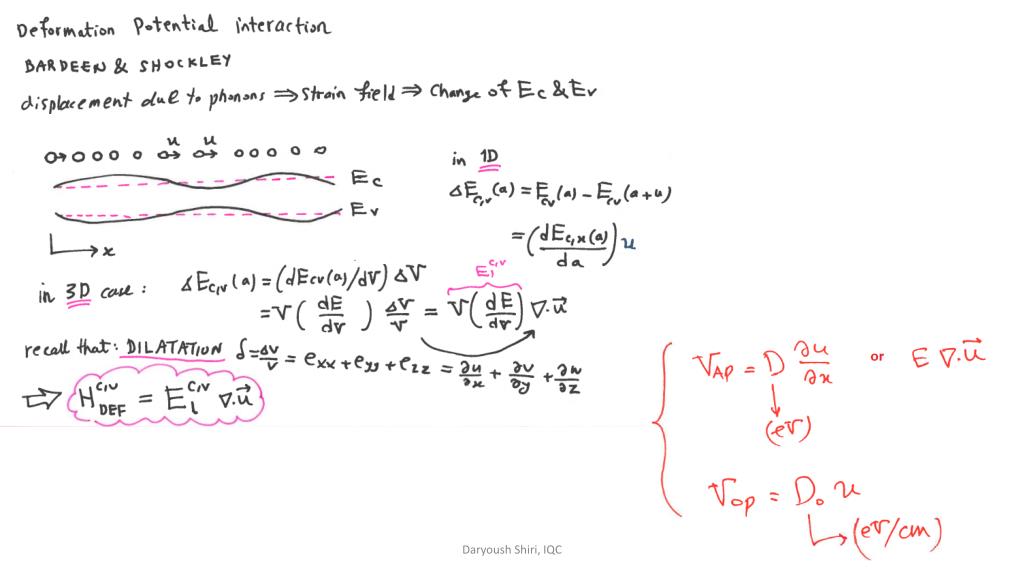 Deformation Potential interaction
BARDEEN & SHOCKLEY
displacement due to phonons ⇒ Strain field ⇒ Change of Ec & Ev
u u
Ec
Ev
x
in 1D
ΔE_{c,v}(a) = E_{cv}(a) − E_{cv}(a+u)
= (dE_{c,v}(a)/da) u
in 3D case: ΔE_{c,v}(a) = (dEcv(a)/dV) ΔV
E_1^{c,v}
= V (dE/dV) ΔV/V = V (dE/dV) ∇.u⃗
recall that: DILATATION δ = ΔV/V = e_{xx} + e_{yy} + e_{zz} = ∂u/∂x + ∂v/∂y + ∂w/∂z
⇒ H_{DEF}^{c,v} = E_1^{c,v} ∇.u⃗
V_{AP} = D ∂u/∂x or E ∇.u⃗
(eV)
V_{OP} = D_o u
(eV/cm)
Daryoush Shiri, IQC